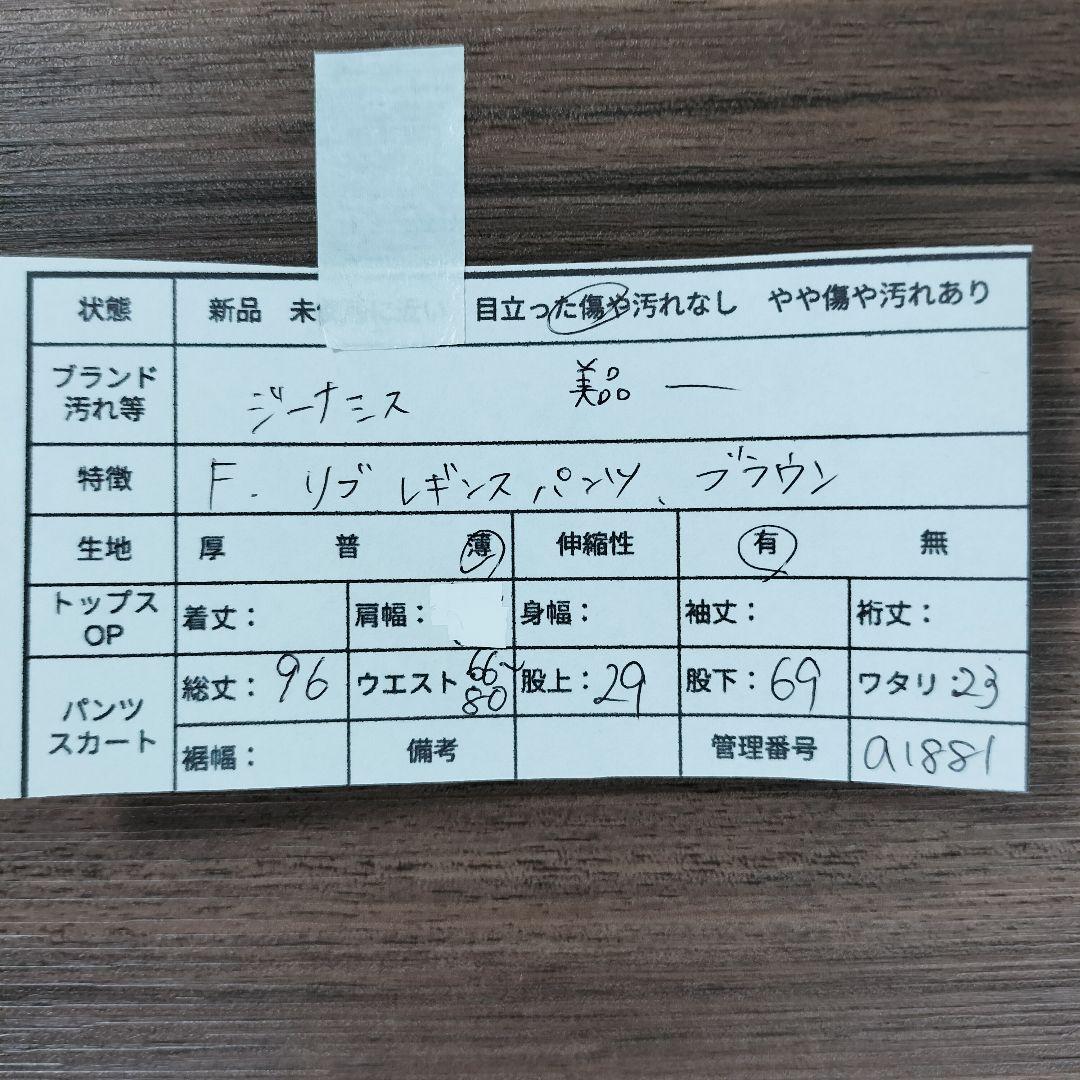 状態 新品 未 目立った傷や汚れなし やや傷や汚れあり
ブランド 汚れ等 ジーナシス 美品 ー
特徴 F. リブレギンスパンツ、ブラウン
生地 厚 普 薄 伸縮性 有 無
トップス OP 着丈: 肩幅: 身幅: 袖丈: 裄丈:
パンツ スカート 総丈: 96 ウエスト 66~80 股上: 29 股下: 69 ワタリ: 23
裾幅: 備考 管理番号 a1881